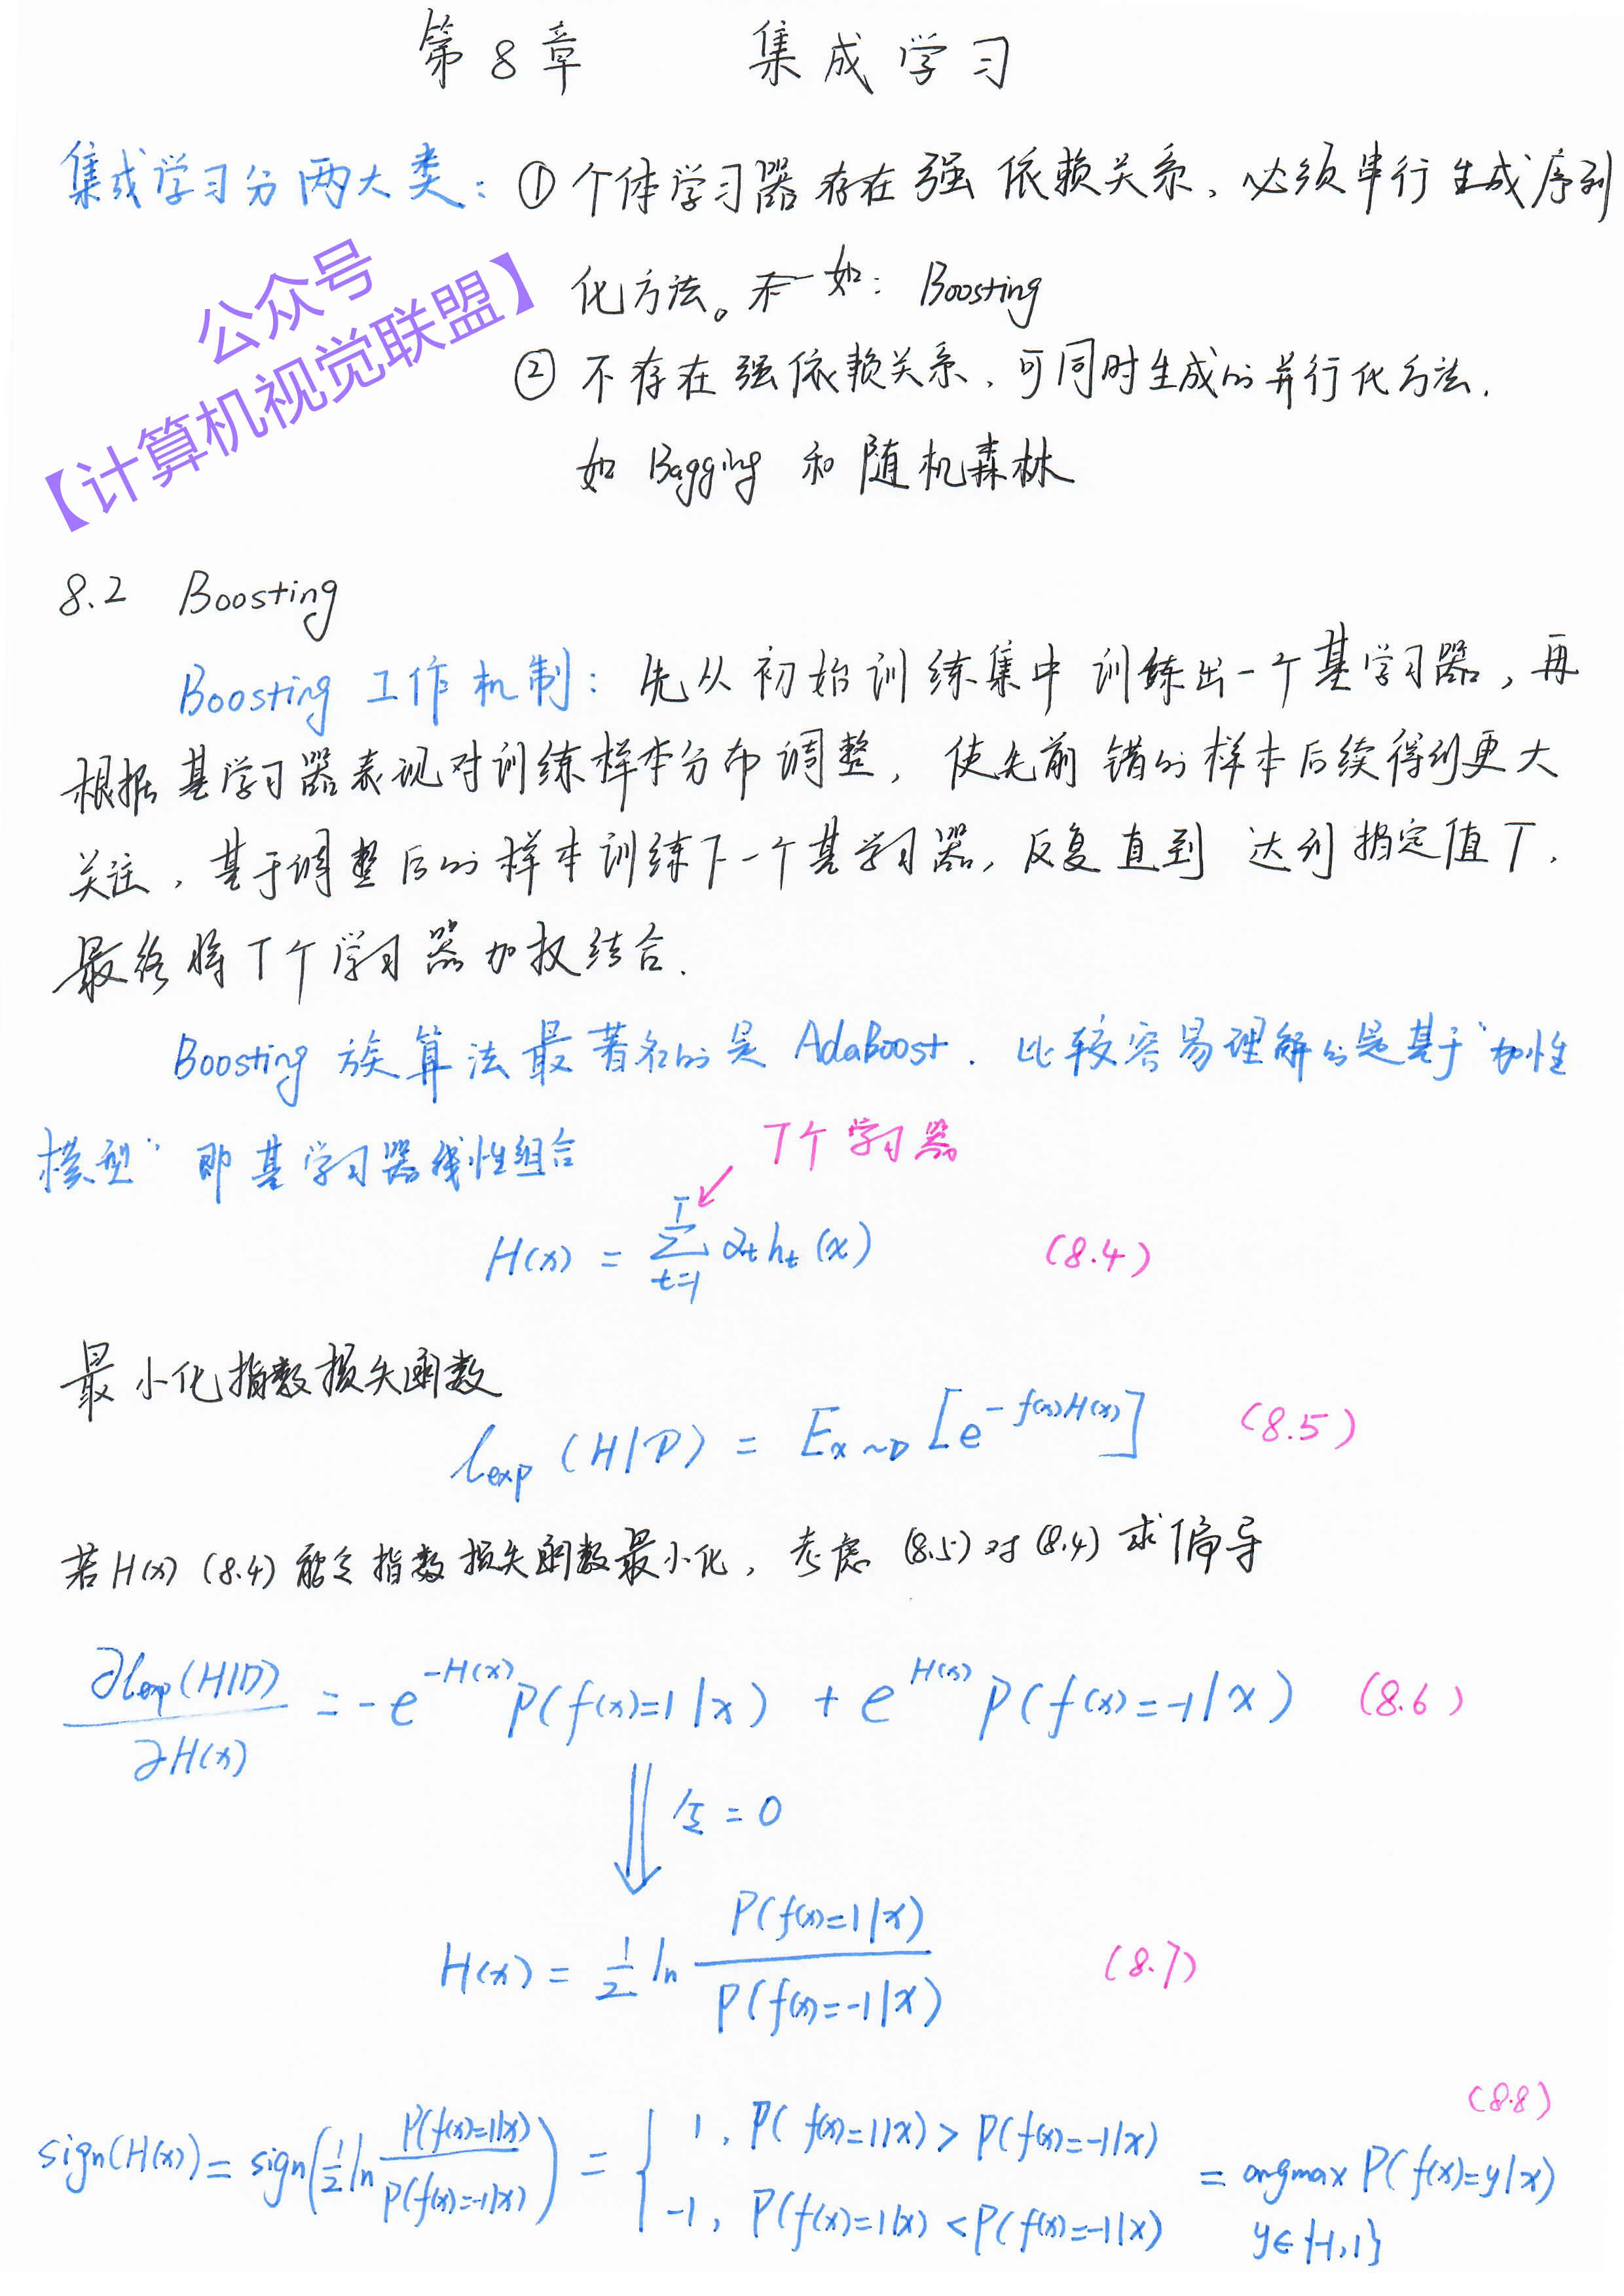 第8章 集成学习
集成学习分两大类：① 个体学习器存在强依赖关系，必须串行生成序列
化方法。如：Boosting
② 不存在强依赖关系，可同时生成的并行化方法.
如 Bagging 和 随机森林
公众号
【计算机视觉联盟】
8.2 Boosting
Boosting 工作机制：先从初始训练集中训练出一个基学习器，再
根据基学习器表现对训练样本分布调整，使先前错的样本后续得到更大
关注，基于调整后的样本训练下一个基学习器，反复直到达到指定值T，
最终将T个学习器加权结合.
Boosting 族算法最著名的是 AdaBoost. 比较容易理解的是基于“加性
模型” 即基学习器线性组合
T个学习器
H(x) = ∑_{t=1}^{T} α_t h_t(x) (8.4)
最小化指数损失函数
ℓ_exp(H|D) = E_{x~D}[e^{-f(x)H(x)}] (8.5)
若H(x) (8.4) 能令指数损失函数最小化，考虑 (8.5) 对 (8.4) 求偏导
∂ℓ_exp(H|D)/∂H(x) = -e^{-H(x)}P(f(x)=1|x) + e^{H(x)}P(f(x)=-1|x) (8.6)
令=0
H(x) = 1/2 ln P(f(x)=1|x)/P(f(x)=-1|x) (8.7)
(8.8)
sign(H(x)) = sign(1/2 ln P(f(x)=1|x)/P(f(x)=-1|x)) = { 1, P(f(x)=1|x) > P(f(x)=-1|x)
-1, P(f(x)=1|x) < P(f(x)=-1|x) = argmax P(f(x)=y|x)
y∈{-1,1}